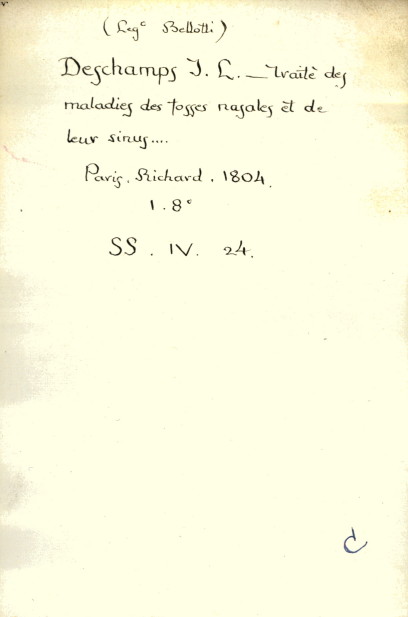 (Leg^c Bellotti)
Deschamps J. L. — Traitè des
maladies des fosses nasales et de
leur sinus....
Paris. Richard. 1804.
1. 8°
SS. IV. 24.
d